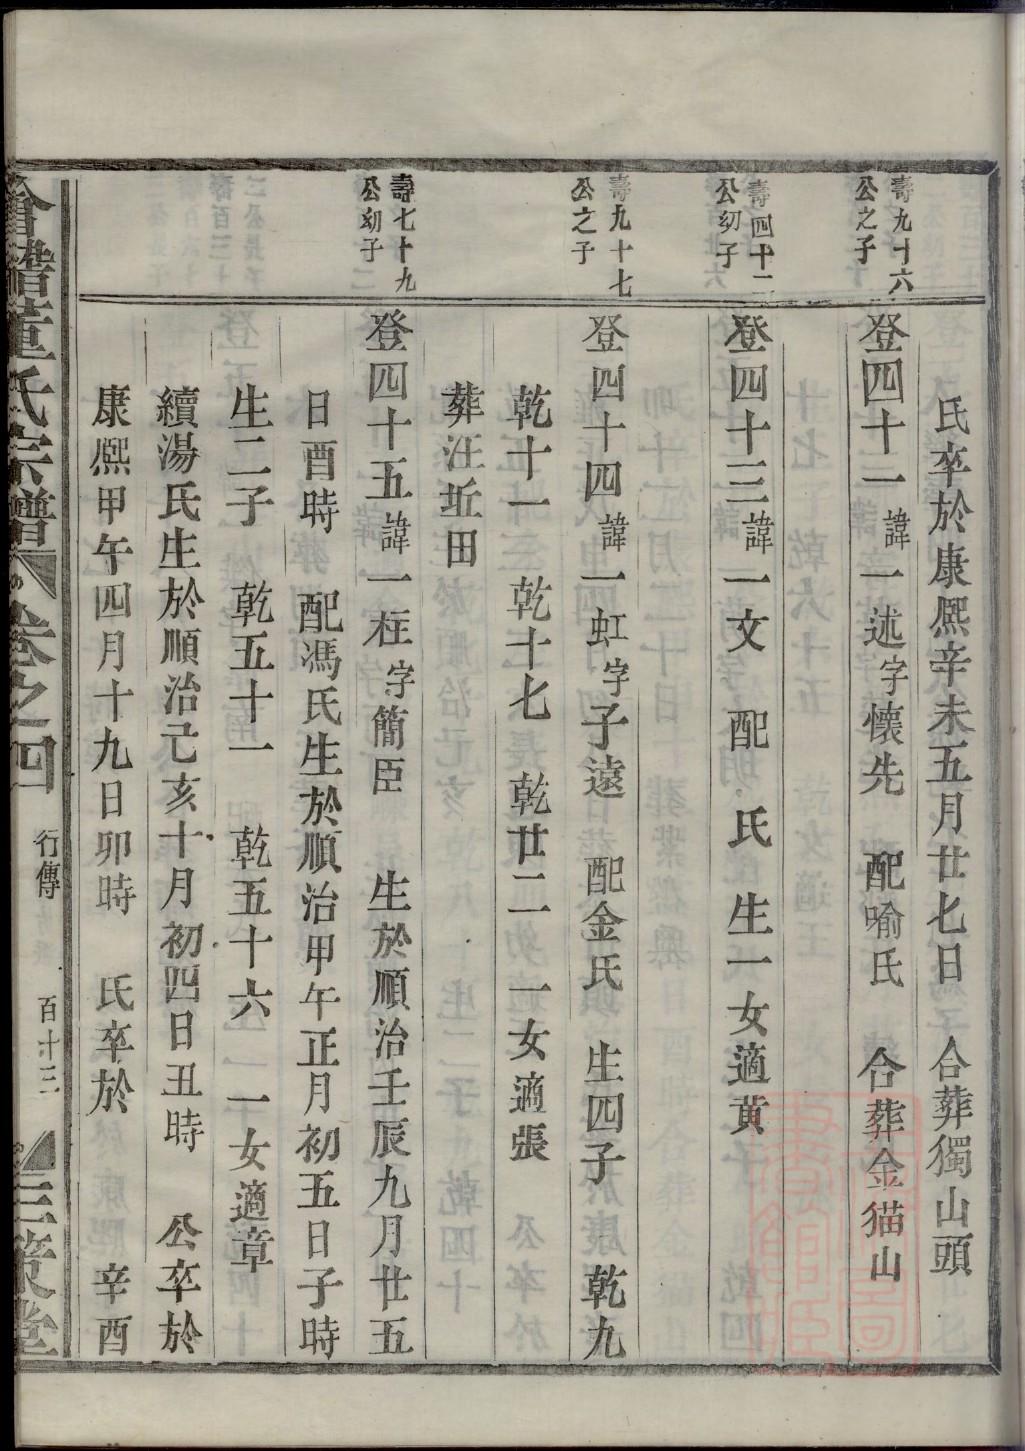 氏卒於康熙辛未五月廿七日　合葬獨山頭
壽九十六
公之子
登四十二諱一述字懷先　配喻氏　合葬金猫山
壽四十二
公幼子
登四十三諱一文　配　氏　生一女適黃
壽九十七
公之子
登四十四諱一虹字子遠　配金氏　生四子　乾九
乾十一　乾十七　乾廿二　一女適張
葬汪坵田
壽七十九
公幼子
登四十五諱一柱字簡臣　生於順治壬辰九月廿五
日酉時　配馮氏生於順治甲午正月初五日子時
生二子　乾五十一　乾五十六　一女適章
續湯氏生於順治己亥十月初四日丑時　公卒於
康熙甲午四月十九日卯時　氏卒於　辛酉
會稽董氏宗譜　卷之四　行傳　百十三　三策堂